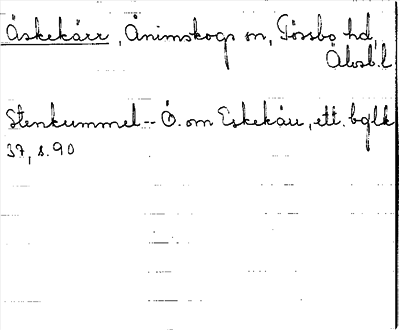 Äskekärr, Ånimskogs sn, Tössbo hd,
Älvsb.l
Stenkummel -- Ö. om Eskekärr, ett. bglk
37, s. 90